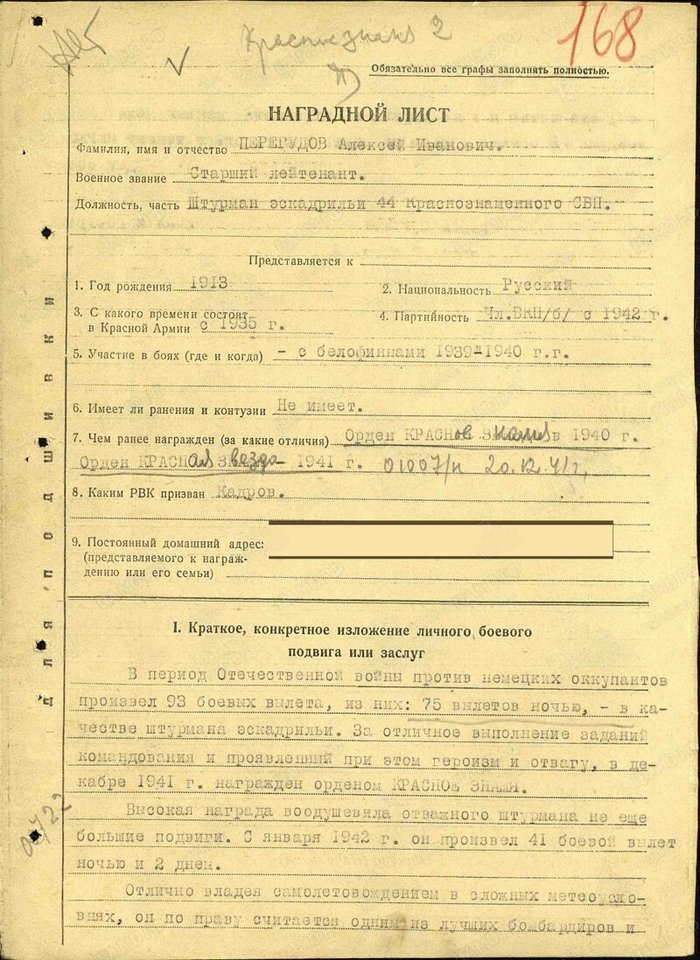 Краснезнамя 2
168
Обязательно все графы заполнять полностью.
НАГРАДНОЙ ЛИСТ
Фамилия, имя и отчество ПЕРЕГУДОВ Алексей Иванович.
Военное звание Старший лейтенант.
Должность, часть Штурман эскадрильи 44 Краснознаменного СБП.
Представляется к
1. Год рождения 1913
2. Национальность Русский
3. С какого времени состоит
в Красной Армии с 1935 г.
4. Партийность Чл.ВКП/б/ с 1942 г.
5. Участие в боях (где и когда) - с белофиннами 1939-1940 г.г.
6. Имеет ли ранения и контузии Не имеет.
7. Чем ранее награжден (за какие отличия) Орден КРАСНое Знамя в 1940 г.
Орден КРАСНая звезда 1941 г. 01007/н 20.12.41г.
8. Каким РВК призван Кадров.
9. Постоянный домашний адрес:
(представляемого к награж-
дению или его семьи)
для подшивки
I. Краткое, конкретное изложение личного боевого
подвига или заслуг
В период Отечественной войны против немецких оккупантов
произвел 93 боевых вылета, из них: 75 вылетов ночью, - в ка-
честве штурмана эскадрильи. За отличное выполнение заданий
командования и проявленный при этом героизм и отвагу, в де-
кабре 1941 г. награжден орденом КРАСНОЕ ЗНАМЯ.
Высокая награда воодушевила отважного штурмана не еще
большие подвиги. С января 1942 г. он произвел 41 боевой вылет
ночью и 2 днем.
Отлично владея самолетовождением в сложных метеоусло-
виях, он по праву считается одним из лучших бомбардиров и